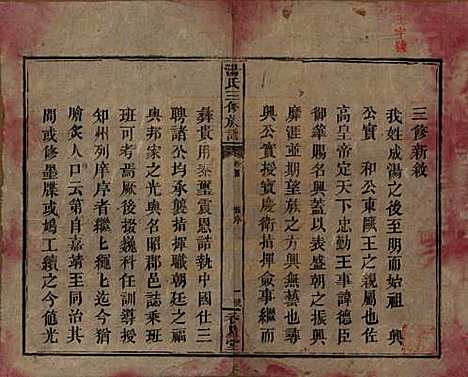 三修新敘
我姓成湯之後至明而始祖 興
公實 和公東甌王之親屬也佐
高皇帝定天下忠勤王事諱德臣
御筆賜名興蓋以表盛朝之振興
靡涯並期望族之方興無藝也尋
興公實受慶衛指揮僉事繼而
彝貴用黍璽賚恩誥執中國仕三
聘諸公承襲指揮職朝廷之龍
與邦家之光與名昭郡邑誌乘班
班可考高厥後掇巍科任訓導授
知州列庠序者繼上迄今猶
膾炙人口云第自嘉靖王同治其
間或修墨牒或鳩工續之今值光
湯氏三修族譜
卷首
敘
一
王字號